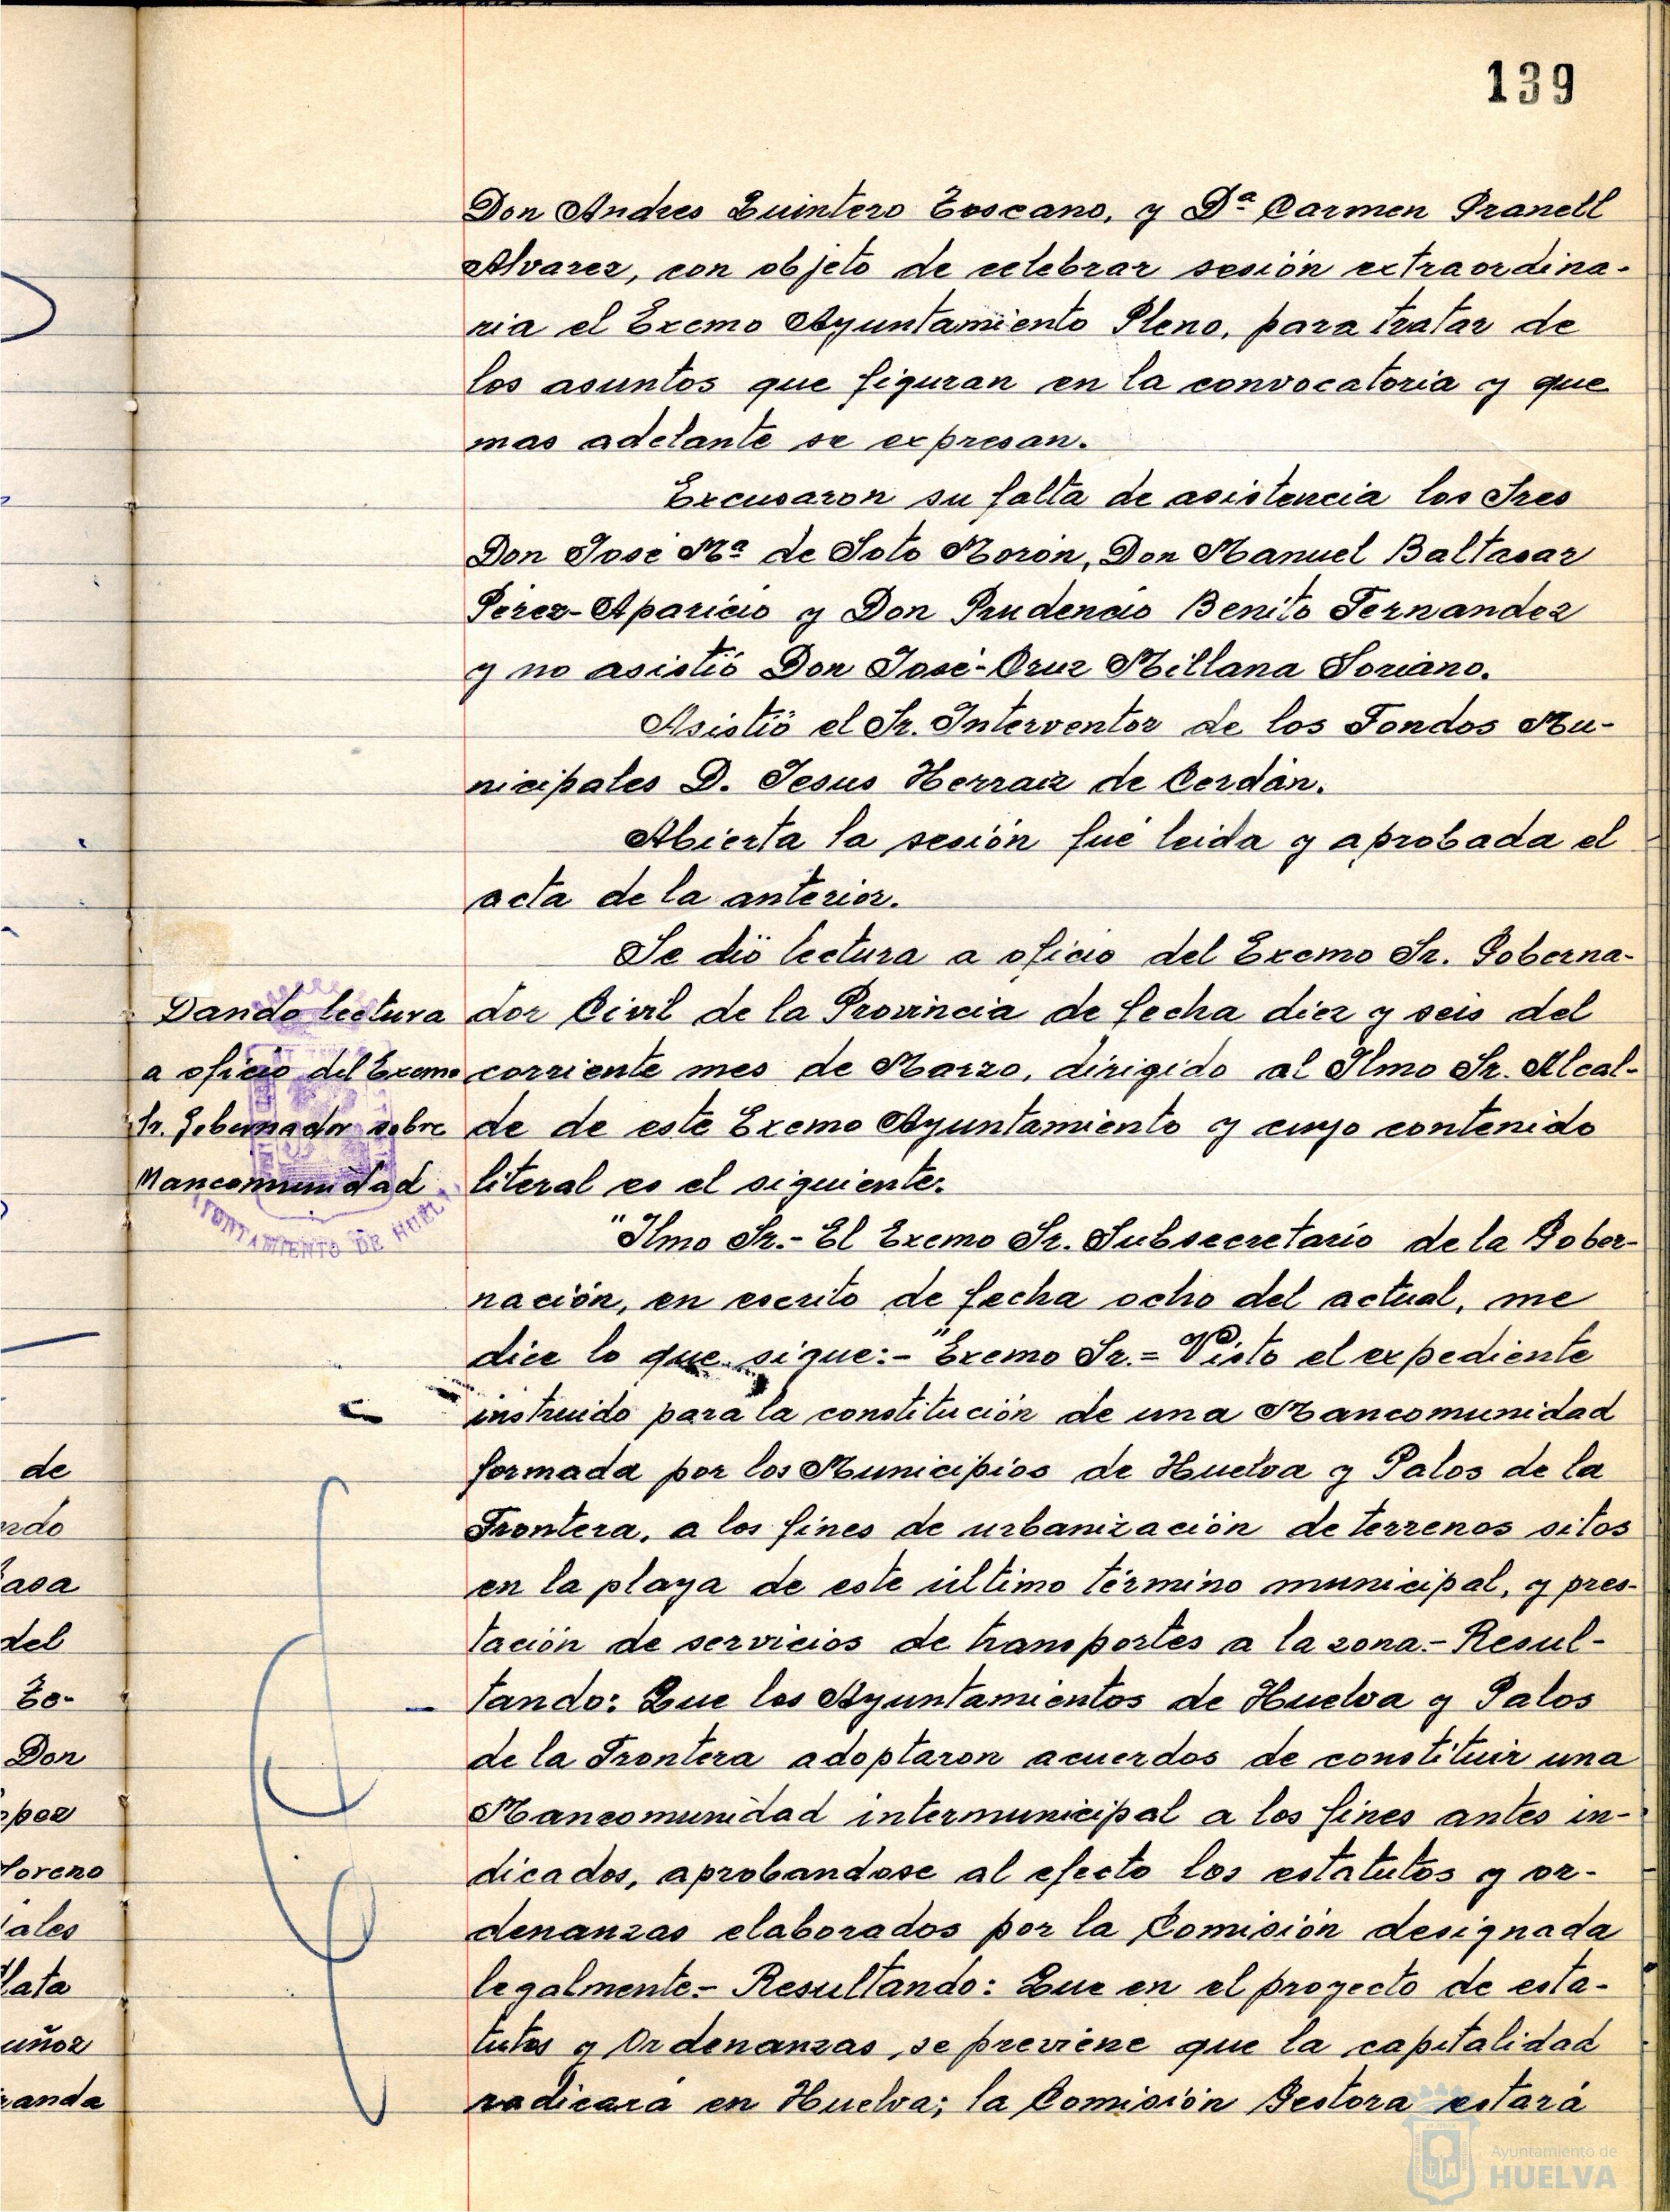 139
Don Andres Quintero Toscano, y Dª Carmen Pranell
Alvarez, con objeto de celebrar sesión extraordina-
ria el Excmo Ayuntamiento Pleno, para tratar de
los asuntos que figuran en la convocatoria y que
mas adelante se expresan.
Excusaron su falta de asistencia los Sres
Don José Mª de Soto Morón, Don Manuel Baltasar
Pérez-Aparicio y Don Prudencio Benito Fernandez
y no asistió Don José-Cruz Millana Soriano.
Asistió el Sr. Interventor de los Fondos Mu-
nicipales D. Jesus Herraiz de Cerdán.
Abierta la sesión fué leida y aprobada el
acta de la anterior.
Se dió lectura a oficio del Excmo Sr. Goberna-
Dando lectura
a oficio del Excmo
Sr. Gobernador sobre
Mancomunidad
AYUNTAMIENTO DE HUELVA
dor Civil de la Provincia de fecha diez y seis del
corriente mes de Marzo, dirigido al Ilmo Sr. Alcal-
de de este Excmo Ayuntamiento y cuyo contenido
literal es el siguiente:
"Ilmo Sr.- El Excmo Sr. Subsecretario de la Gober-
nación, en escrito de fecha ocho del actual, me
dice lo que sigue:- "Excmo Sr.= Visto el expediente
instruido para la constitución de una Mancomunidad
formada por los Municipios de Huelva y Palos de la
Frontera, a los fines de urbanización de terrenos sitos
en la playa de este último término municipal, y pres-
tación de servicios de transportes a la zona.- Resul-
tando: Que los Ayuntamientos de Huelva y Palos
de la Frontera adoptaron acuerdos de constituir una
Mancomunidad intermunicipal a los fines antes in-
dicados, aprobandose al efecto los estatutos y or-
denanzas elaborados por la Comisión designada
legalmente.- Resultando: Que en el proyecto de esta-
tutos y Ordenanzas, se previene que la capitalidad
radicará en Huelva; la Comisión Gestora estará
de
del
Don
Ayuntamiento de
HUELVA